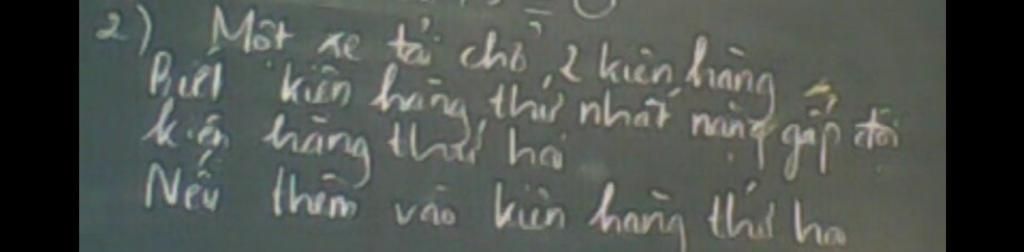 2) Một xe tải chở 2 kiện hàng
Biết kiện hàng thứ nhất nặng gấp đôi
kiện hàng thứ hai
Nếu thêm vào kiện hàng thứ ha